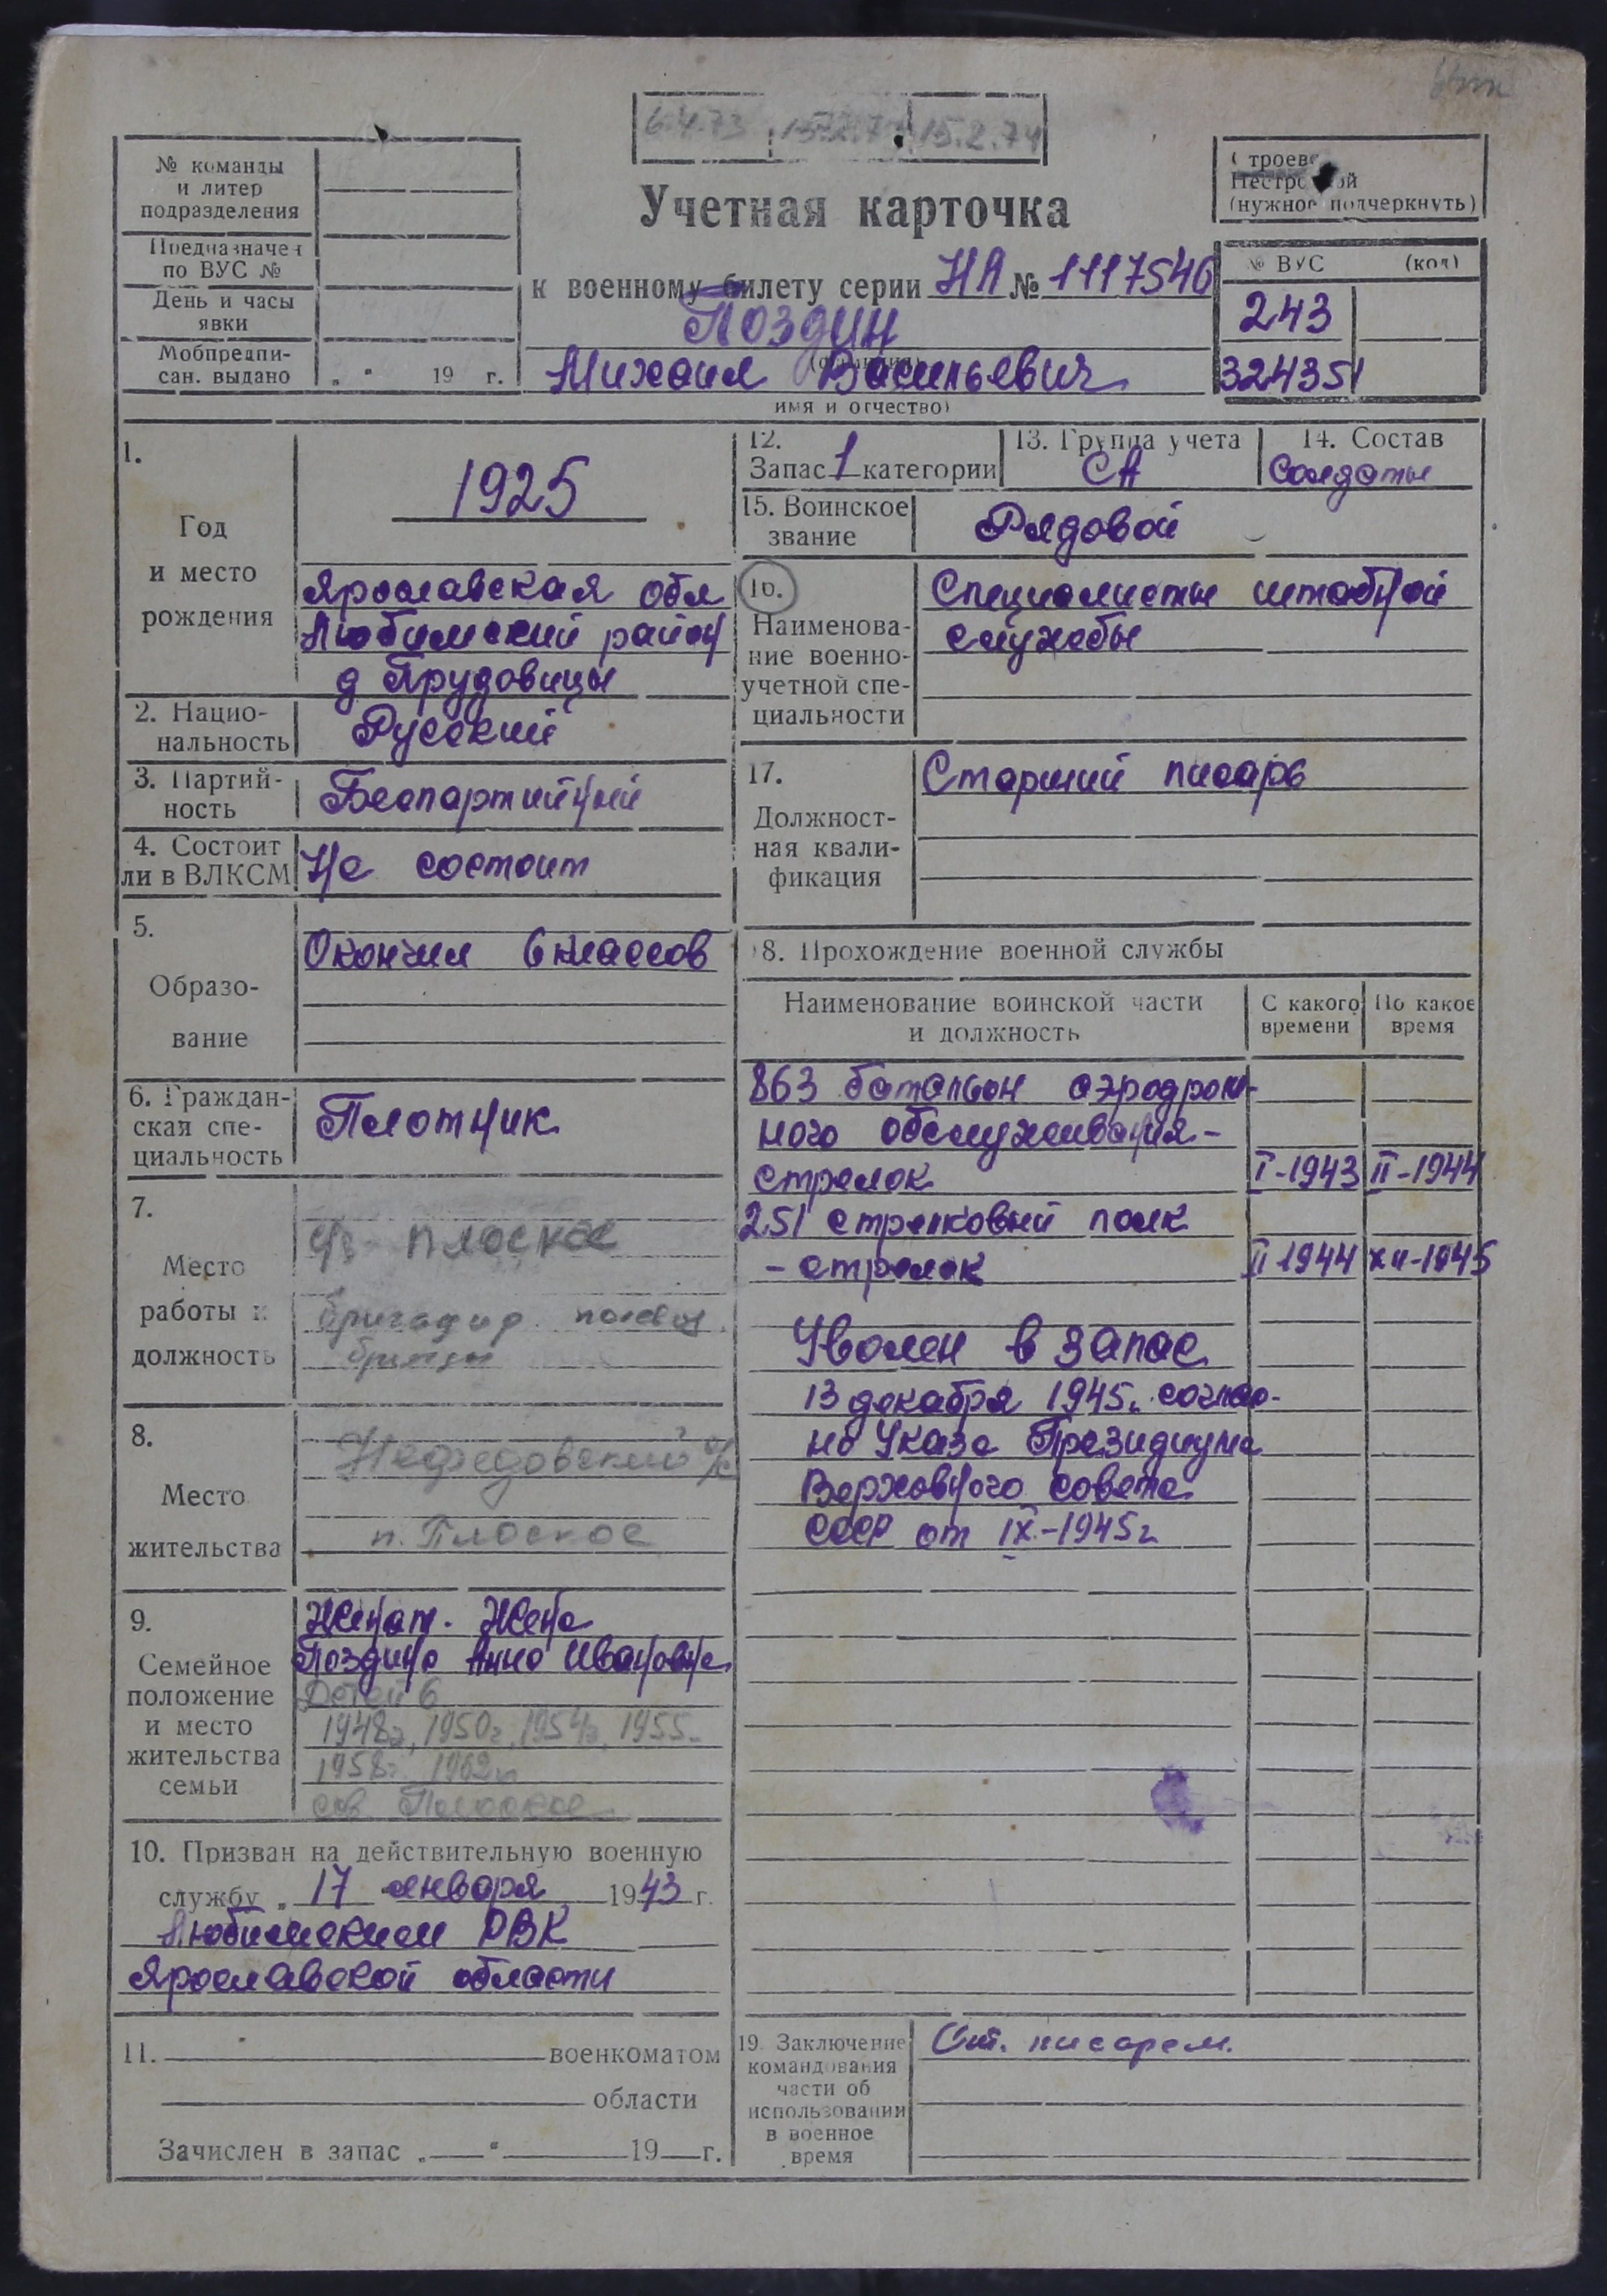 6.4.73 15.2.74
№ команды
и литер
подразделения
Предназначен
по ВУС №
День и часы
явки
Мобпредпи-
сан. выдано „ “ 19 г.
Учетная карточка
к военному билету серии НЯ № 1117546
Поздин
(фамилия)
Михаил Васильевич
имя и отчество)
Строевой
Нестроевой
(нужное подчеркнуть)
№ ВУС (код)
243
324351
1.
Год
и место
рождения
1925
Ярославская обл
Любимский район
д Прудовицы
2. Нацио-
нальность
Русский
3. Партий-
ность
Беспартийный
4. Состоит
ли в ВЛКСМ
Не состоит
5.
Образо-
вание
Окончил 6 классов
6. Граждан-
ская спе-
циальность
Плотник
7.
Место
работы и
должность
Плоское
бригадир полев.
8.
Место
жительства
Нефедовский с/с
п. Плоское
9.
Семейное
положение
и место
жительства
семьи
Женат. Жена
Поздина Анна Ивановна
Детей 6
1948г, 1950г, 1954г, 1955.
1958г. 1962г
сов Плоское
10. Призван на действительную военную
службу „ 17 января 1943 г.
Любимским РВК
Ярославской области
11. военкоматом
области
Зачислен в запас „ “ 19 г.
12.
Запас 1 категории
13. Группа учета
СА
14. Состав
Солдаты
15. Воинское
звание
Рядовой
16.
Наименова-
ние военно-
учетной спе-
циальности
Специалисты штабной
службы
17.
Должност-
ная квали-
фикация
Старший писарь
18. Прохождение военной службы
Наименование воинской части
и должность
С какого
времени
По какое
время
863 батальон аэродром-
ного обслуживания-
стрелок I-1943 II-1944
251 стрелковый полк
- стрелок II 1944 XII-1945
Уволен в запас
13 декабря 1945г. соглас-
но Указа Президиума
Верховного совета
СССР от IX-1945г
19. Заключение
командования
части об
использовании
в военное
время
Ст. писарем.